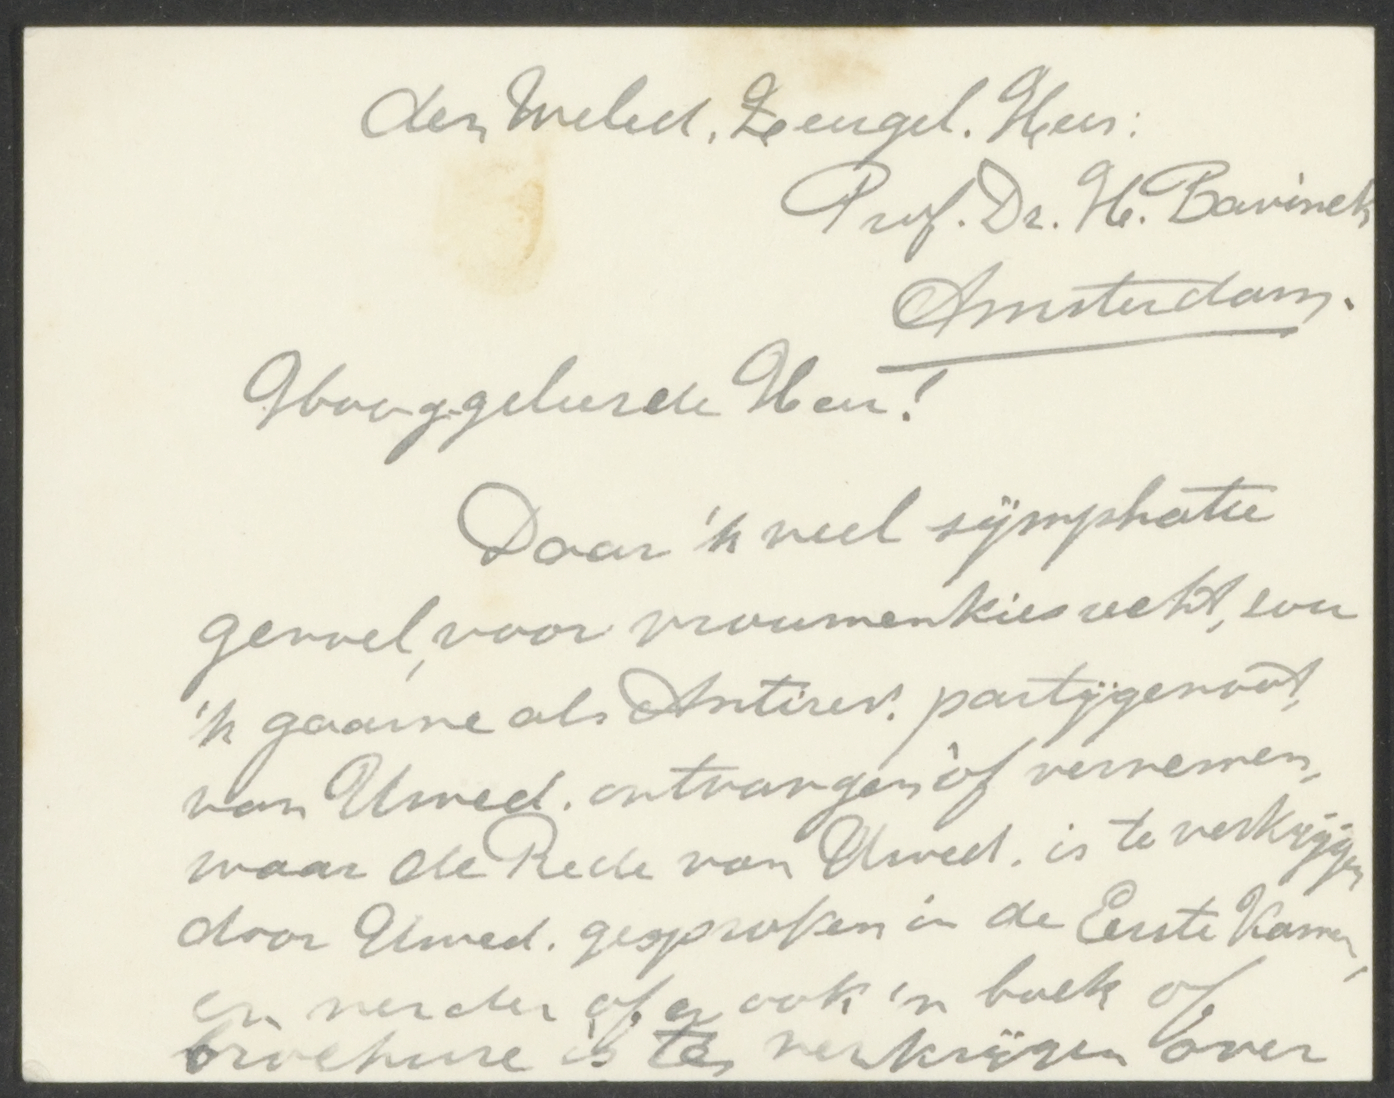 den Weled. Zeergel. Heer:
Prof. Dr. H. Bavinck
Amsterdam.
Hooggeleerde Heer!
Daar 'k veel sÿmphatie
gevoel, voor vrouwenkiesrecht, zou
'k gaarne als Antirev. partÿgenoot,
van Uwed. ontvangen of vernemen,
waar de Rede van Uwed. is te verkrÿgen
door Uwed. gesproken in de Eerste Kamer,
en verder of er ook 'n boek of
brochure is te verkrÿgen over